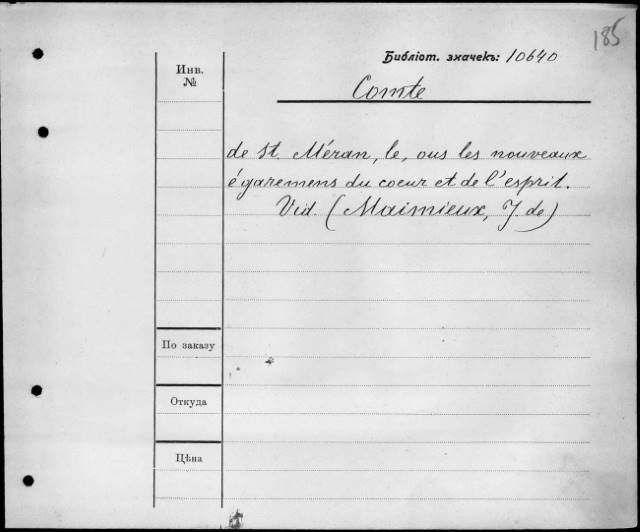 185
Библіот. значекъ: 10640
Инв.
№
Comte
de St. Méran, le, ous les nouveaux
égaremens du coeur et de l'esprit.
Vid. (Maimieux, J. de)
По заказу
Откуда
Цѣна